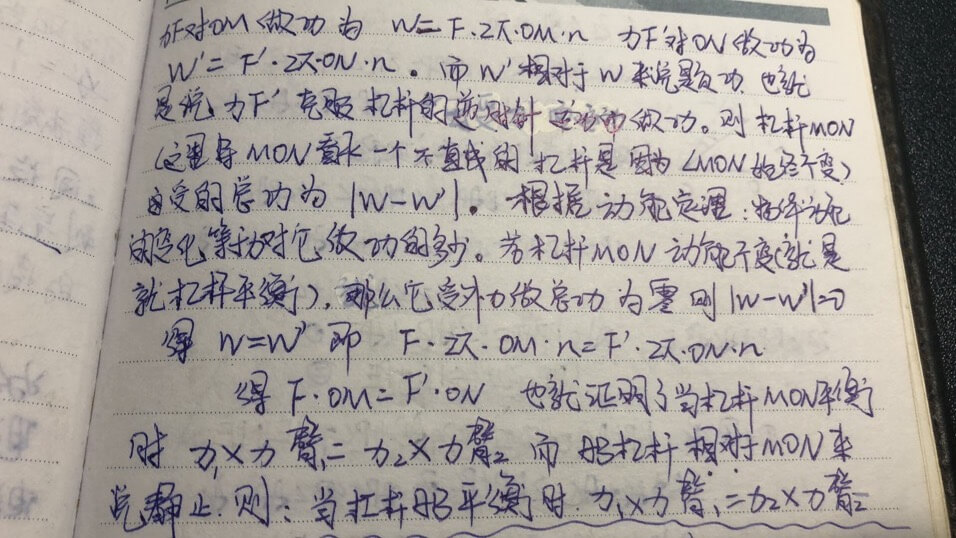 力F对OM做功为 W=F·2π·OM·n 力F'对ON做功为
W'=F'·2π·ON·n。而W'相对于W来说是负功 也就
是说 力F'克服杠杆的逆时针运动做功。则杠杆MON
(这里将MON看成一个不直线的杠杆是因为∠MON始终不变)
受的总功为 |W-W'|。根据动能定理:物体动能
的变化等于力对它做功的多少。若杠杆MON动能不变(就是
就杠杆平衡),那么它受外力做总功为零 则|W-W'|=0
得 W=W' 即 F·2π·OM·n=F'·2π·ON·n
得 F·OM=F'·ON 也就证明了当杠杆MON平衡
时 力₁×力臂₁=力₂×力臂₂ 而 杠杆相对于MON来
说静止 则:当杠杆 平衡时 力₁×力臂₁=力₂×力臂₂